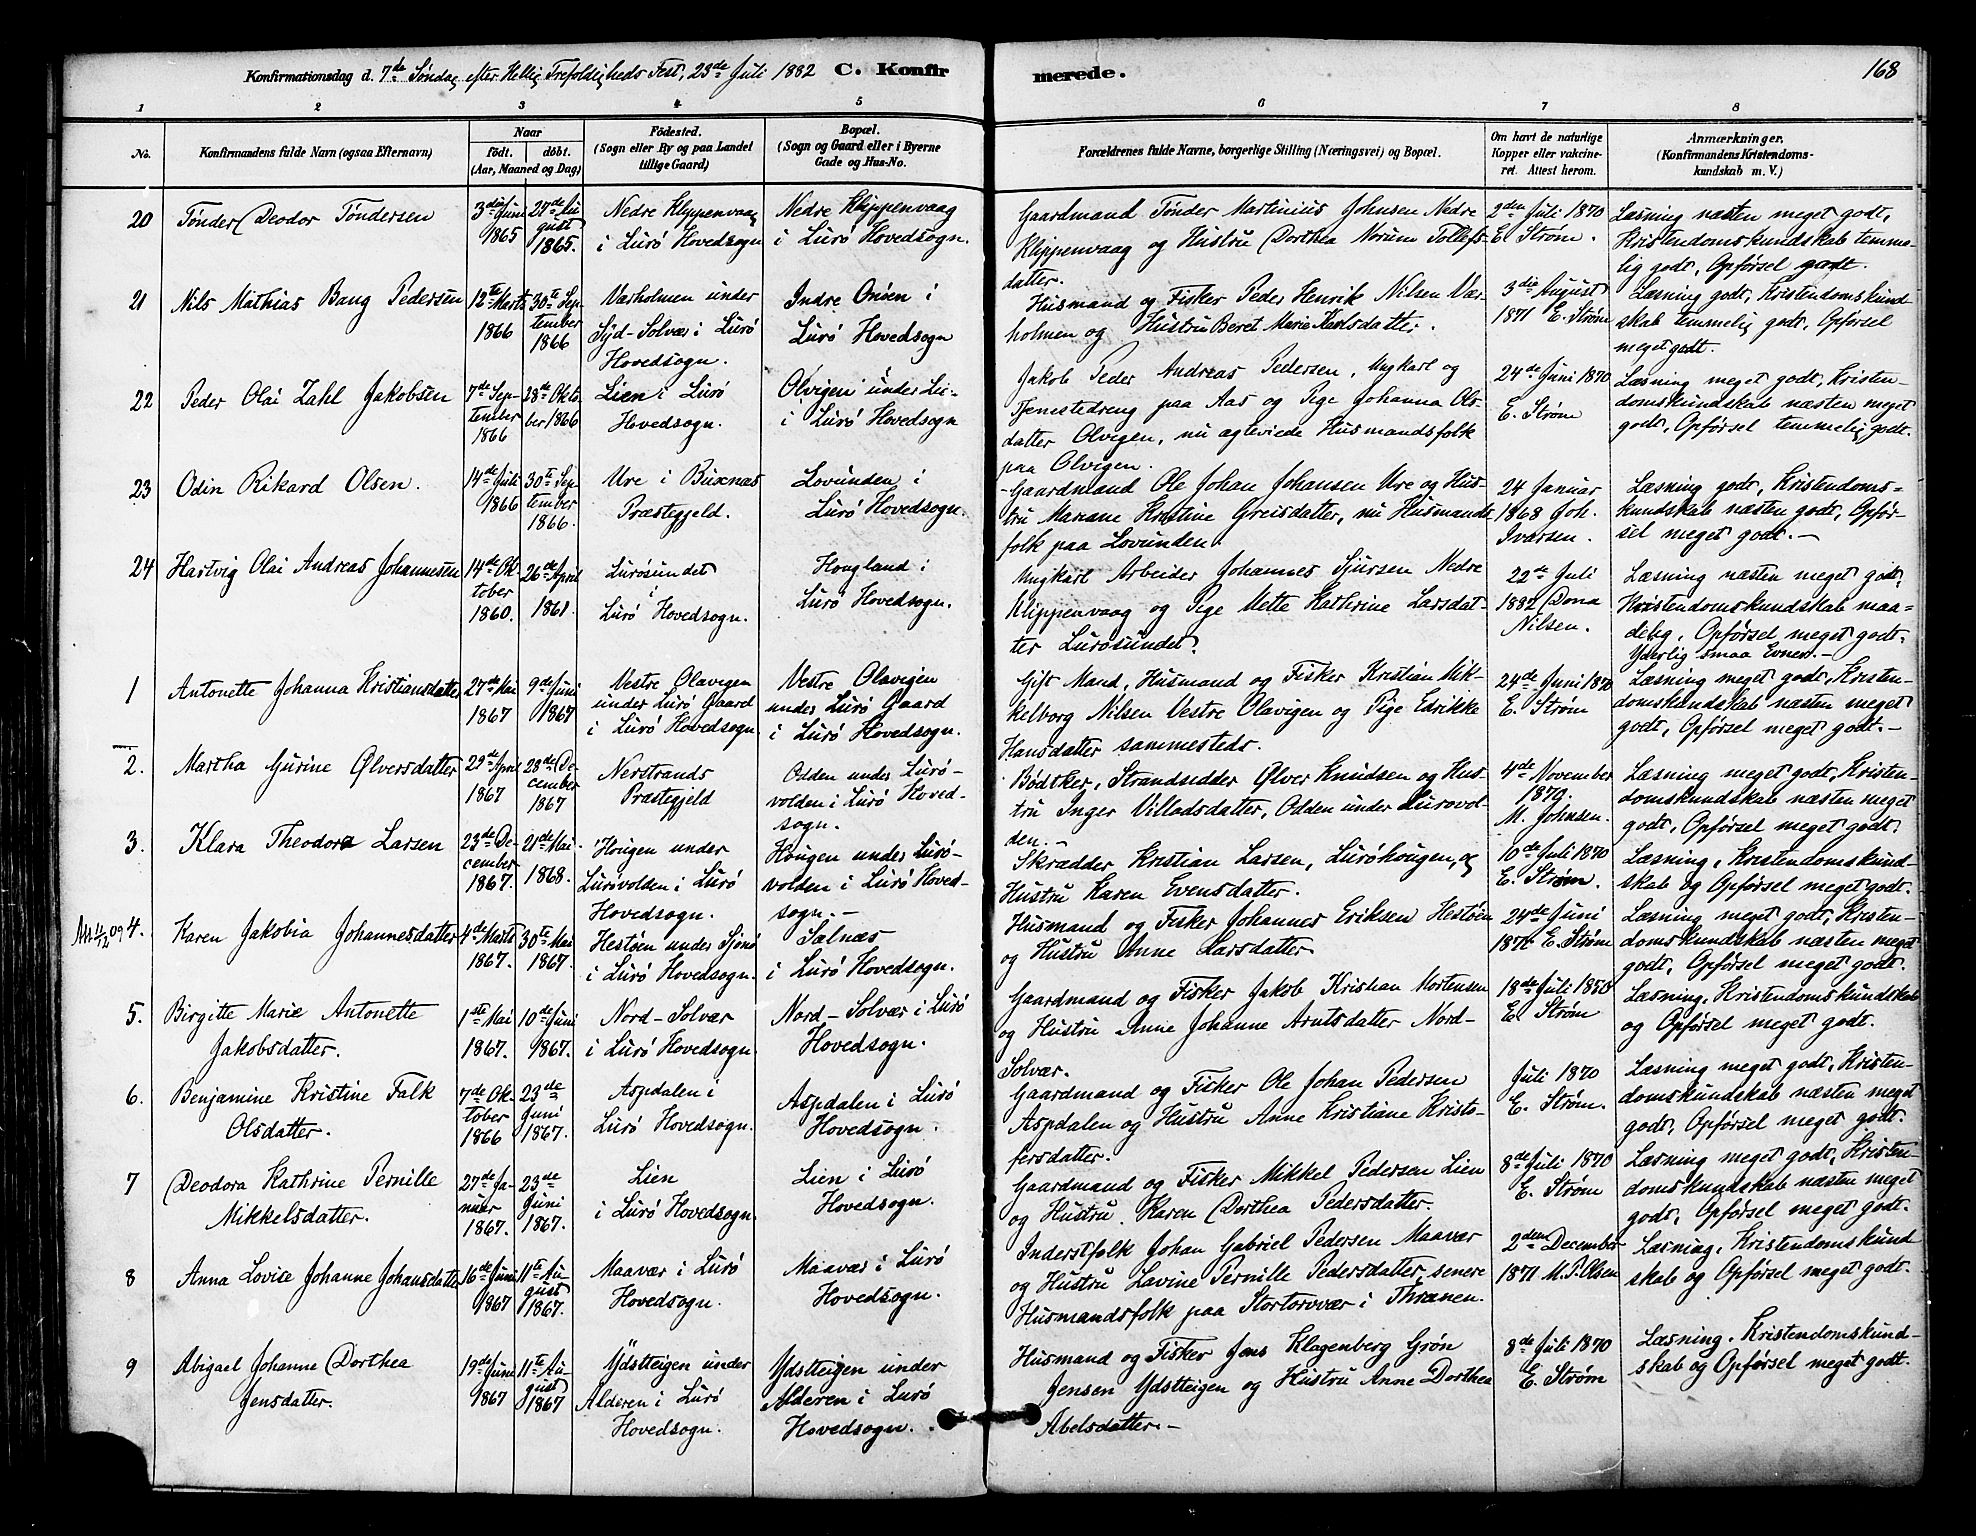 Konfirmationsdag d. 7de Søndag efter Hellig Trefoldigheds Fest, 23de Juli 1882 C. Konfirmerede. 168
1 2 3 4 5 6 7 8
No.
Konfirmandens fulde Navn (ogsaa Efternavn)
Naar
født. døbt.
(Aar, Maaned og Dag)
Fødested.
(Sogn eller By og paa Landet
tillige Gaard)
Bopæl.
(Sogn og Gaard eller i Byerne
Gade og Hus-No.
Forældrenes fulde Navne, borgerlige Stilling (Næringsvei) og Bopæl.
Om havt de naturlige
Kopper eller vakcine-
ret. Attest herom.
Anmærkninger,
(Konfirmandens Kristendoms-
kundskab m. V.)
20
Tønder Deodor Tøndersen
3die Juni
1865
27de Au
gust
1865.
Nedre Klippenvaag
i Lurö Hovedsogn
Nedre Klippenvaag
i Lurö Hovedsogn.
Gaardmand Tønder Martinius Johnsen Nedre
Klippenvaag og Hustru Dorthea Norum Tollefs-
datter.
2den Juli 1870
E. Strøm.
Læsning næsten meget godt,
Kristendomskundskab temme-
lig godt, Opførsel godt.
21
Nils Mathias Bang Pedersen
12te Marts
1866
30te Sep
tember
1866
Varholmen under
Syd-Solvær i Lurö
Hovedsogn.
Indre Onöen i
Lurö Hovedsogn
Husmand og Fisker Peder Henrik Nilsen Var-
holmen og Hustru Beret Marie Karlsdatter.
3die August
1871 E. Strøm
Læsning godt, Kristendomskund
skab temmelig godt, Opførsel
meget godt.
22
Peder Olai Zahl Jakobsen
7de Sep-
tember
1866
28de Okto
ber 1866
Lien i Lurö
Hovedsogn.
Olvigen under Lu-
i Lurö Hovedsogn
Jakob Peder Andreas Pedersen, Ungkarl og
Tjenestedreng paa Aas og Pige Johanna Ols-
datter Olvigen, nu ægteviede Husmandsfolk
paa Olvigen.
24de Juni 1870
E. Strøm
Læsning meget godt, Kristen-
domskundskab næsten meget
godt, Opførsel temmelig godt.
23
Odin Rikard Olsen.
14de Juli
1866
30te Sep
tember
1866.
Ure i Buxnæs
Præstegjeld.
Lovunden i
Lurö Hovedsogn.
Gaardmand Ole Johan Johansen Ure og Hus-
tru Mariane Kristine Greisdatter, nu Husmands
folk paa Lovunden.
24 Januar
1868 Joh.
Ivarsen.
Læsning godt, Kristendoms-
kundskab næsten godt, Opfør-
sel meget godt. —
24
Hartvig Olai Andreas Johannesen
14de Ok
tober
1860.
26de April
1861.
Lurösundet
i
Lurö Hovedsogn.
Hougland i
Lurö Hovedsogn.
Ungkarl Arbeider Johannes Sjursen Nedre
Klippenvaag og Pige Mette Kathrine Larsdat-
ter Lurösundet.
22de Juli
1882 Dona
Nilsen.
Læsning næsten meget godt,
Kristendomskundskab maa-
delig, Opførsel meget godt.
Yderlig smaa Evner. —
1
Antonette Johanna Kristiansdatter
27de Mai
1867
9de Juni
1867
Vestre Olavigen
under Lurö Gaard
i Lurö Hovedsogn.
Vestre Olavigen
under Lurö Gaard
i Lurö Hovedsogn.
Gift Mand, Husmand og Fisker Kristian Mik-
kelborg Nilsen Vestre Olavigen og Pige Edrikke
Hansdatter sammesteds.
24de Juni 1870
E. Strøm
Læsning meget godt, Kristen-
domskundskab næsten meget
godt, Opførsel meget godt. —
2.
Martha Gurine Ølversdatter
29de April
1867
28de De-
cember
1867
Nerstrands
Præstegjeld
Odden under Lurö-
volden i Lurö Hoved-
sogn.
Bödtker, Strandsidder Ølver Knudsen og Hus-
tru Inger Villadsdatter, Odden under Lurovol-
den. —
4de November
1879.
M. Johnsen.
Læsning meget godt, Kristen-
domskundskab næsten meget
godt, Opførsel meget godt.
3.
Klara Theodora Larsen
23de De-
cember
1867.
21de Mai
1868.
Hougen under
Lurövolden i Lurö
Hovedsogn.
Hougen under Lurö-
volden i Lurö Hoved-
sogn. —
Skrædder Kristian Larsen, Luröhougen, og
Hustru Karen Evensdatter.
10de Juli 1870
E. Strøm.
Læsning, Kristendomskund
skab og Opførsel meget godt.
4.
Karen Jakobia Johannesdatter
4de Marts
1867.
30te Mai
1867.
Hestöen under Sjonö
i Lurö Hovedsogn.
Sælnæs
i Lurö Hovedsogn.
Husmand og Fisker Johannes Eriksen Hestöen
og Hustru Anne Larsdatter.
24de Juni
1871 E. Strøm
Læsning meget godt, Kristen-
domskundskab næsten meget
godt, Opførsel meget godt.
5.
Birgitte Marie Antonette
Jakobsdatter.
1ste Mai
1867.
10de Juni
1867.
Nord-Solvær
i Lurö Hovedsogn.
Nord-Solvær i Lurö
Hovedsogn.
Gaardmand og Fisker Jakob Kristian Mortensen
og Hustru Anne Johanne Arntsdatter Nord-
Solvær.
18de Juli 1870
E. Strøm
Læsning, Kristendomskundskab
og Opførsel meget godt.
6.
Benjamine Kristine Falk
Olsdatter.
7de Ok-
tober
1866
23de
Juni
1867.
Aspdalen i
Lurö Hovedsogn.
Aspdalen i Lurö
Hovedsogn.
Gaardmand og Fisker Ole Johan Pedersen
Aspdalen og Hustru Anne Kristiane Kristo-
fersdatter.
Juli 1870
E. Strøm.
Læsning meget godt, Kristen-
domskundskab næsten meget
godt, Opførsel meget godt.
7
Deodora Kathrine Pernille
Mikkelsdatter.
27de Ja-
nuar
1867.
23de
Juni
1867.
Lien
i Lurö Hovedsogn.
Lien i Lurö
Hovedsogn.
Gaardmand og Fisker Mikkel Pedersen Lien
og Hustru Karen Dorthea Pedersdatter.
8de Juli 1870
E. Strøm
Læsning meget godt, Kristen-
domskundskab næsten meget
godt, Opførsel meget godt.
8
Anna Lovise Johanne Johansdatter
16de Juni
1867
11te Au-
gust
1867.
Maavær i Lurö
Hovedsogn.
Maavær i Lurö
Hovedsogn.
Inderstfolk Johan Gabriel Pedersen Maavær
og Hustru Lavine Pernille Pedersdatter, senere
Husmandsfolk paa Stortorvær i Thrænen.
2den December
1871 M. P. Olsen
Læsning, Kristendomskund
skab og Opførsel meget godt.
9
Abigael Johanne Dorthea
Jensdatter.
19de Juni
1867
11te Au-
gust
1867
Ydstteigen under
Alderen i Lurö
Hovedsogn.
Ydstteigen under
Alderen i Lurö
Hovedsogn.
Husmand og Fisker Jens Klagenberg Grøn
Jensen Ydstteigen og Hustru Anne Dorthea
Abelsdatter. —
8de Juli 1870
E. Strøm
Læsning, Kristendomskund-
skab og Opførsel meget godt.